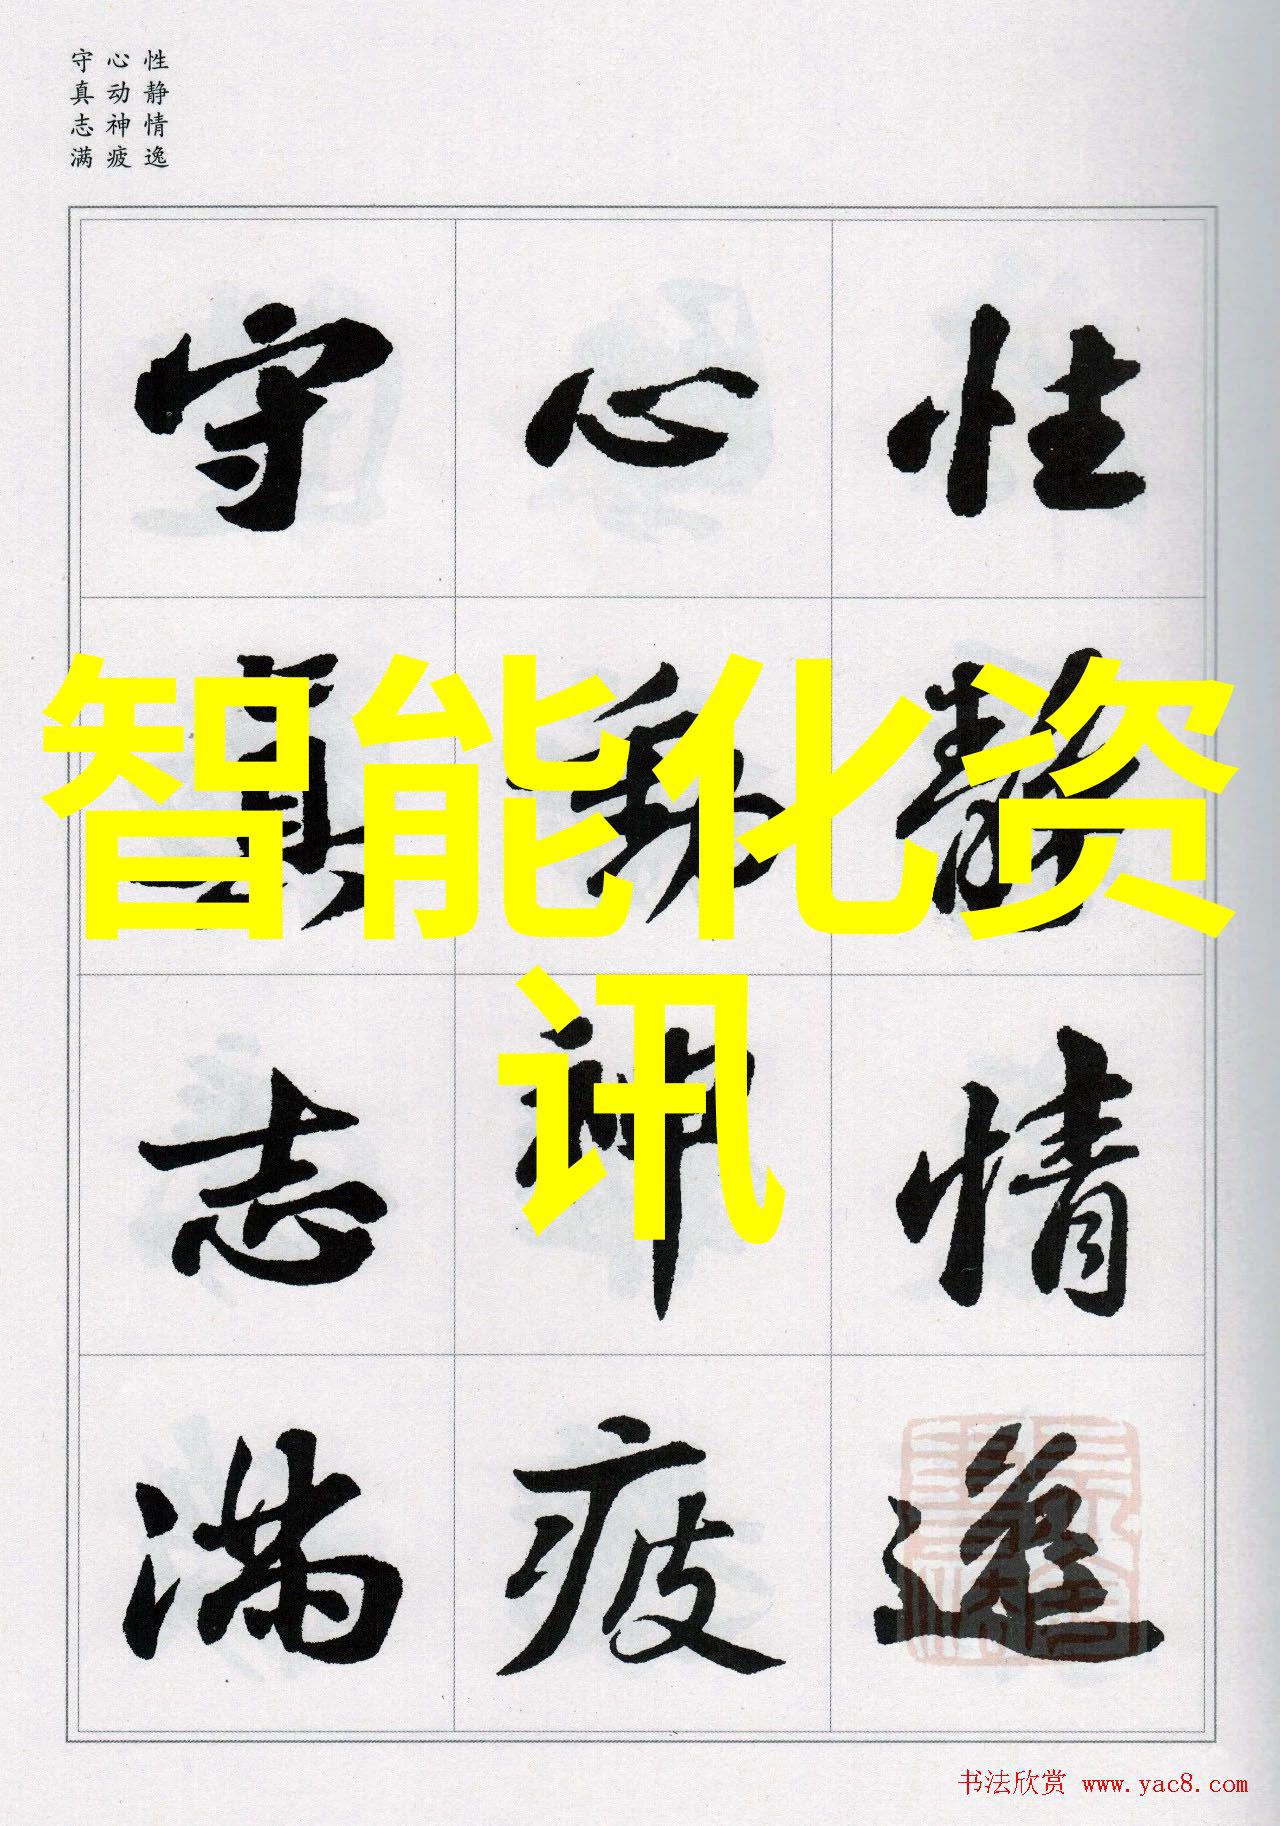 性静情逸
心动神疲
守真志满
性靜情逸
心動神疲
守真志滿
智能化资
讯
书法欣赏 www.yac8.com